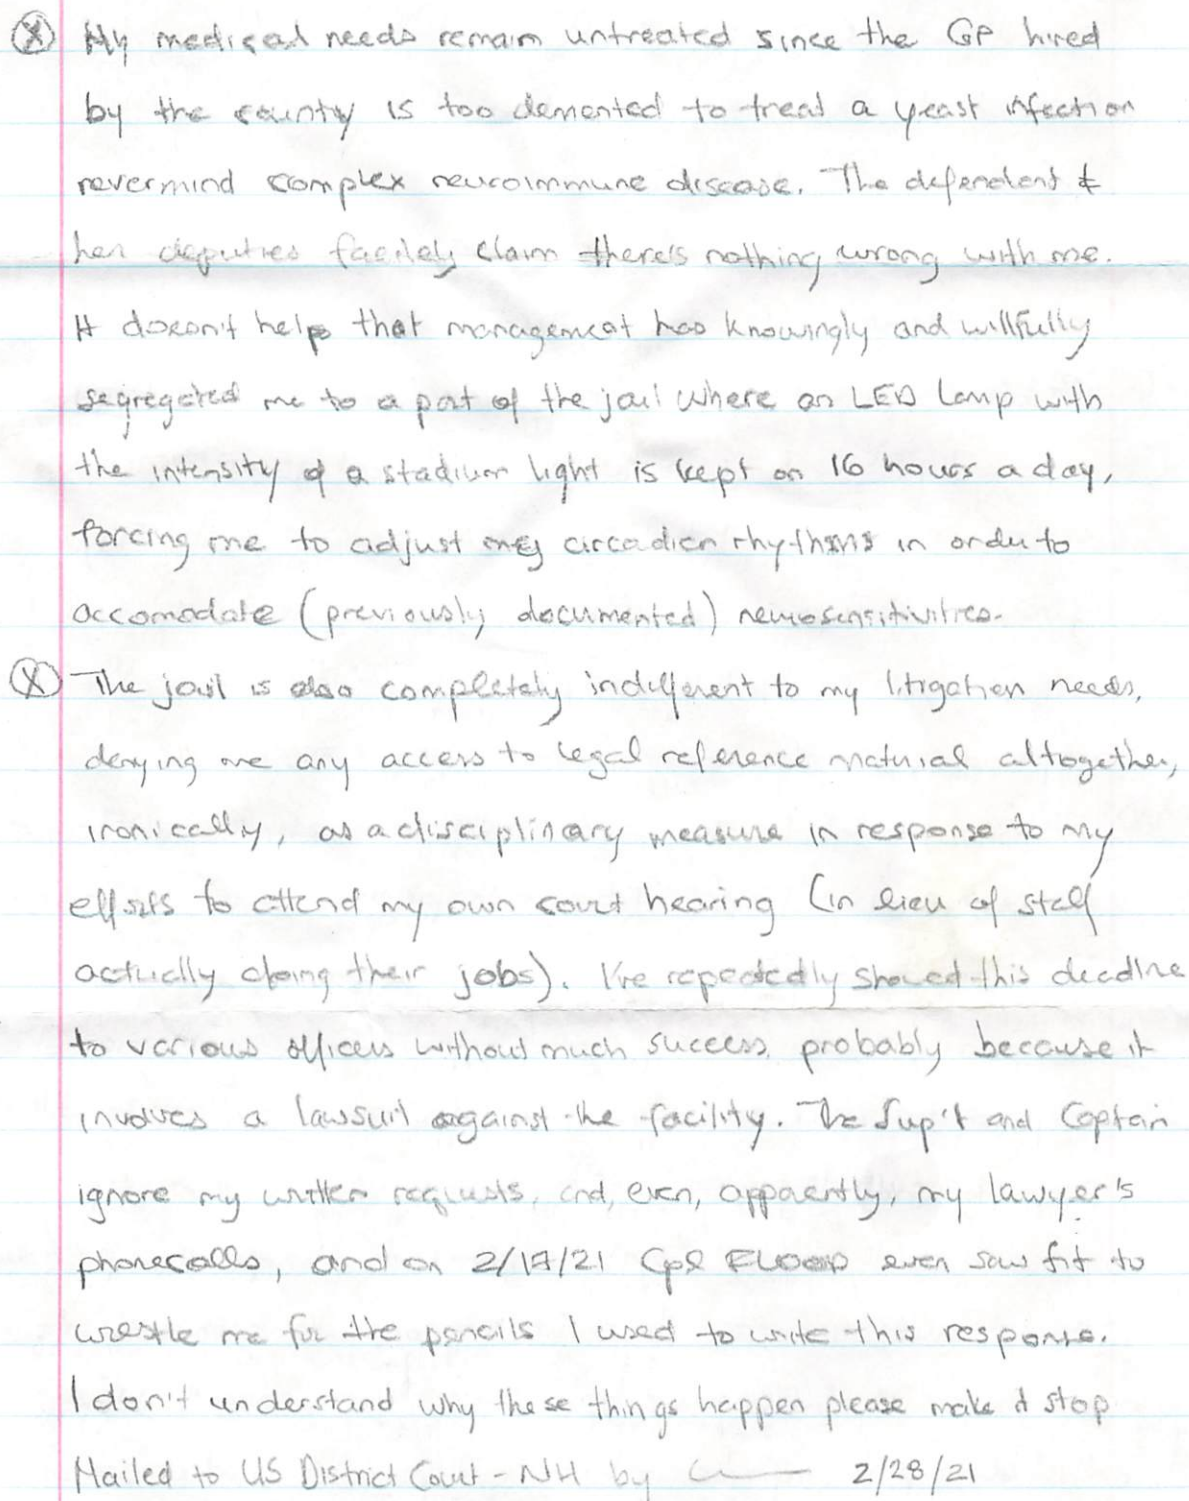 Ⓧ My medical needs remain untreated since the GP hired
by the county is too demented to treat a yeast infection
nevermind complex neuroimmune disease. The defendant &
her deputies facilely claim there's nothing wrong with me.
It doesn't help that management has knowingly and willfully
segregated me to a part of the jail where an LED lamp with
the intensity of a stadium light is kept on 16 hours a day,
forcing me to adjust my circadian rhythms in order to
accomodate (previously documented) neurosensitivities.
Ⓧ The jail is also completely indifferent to my litigation needs,
denying me any access to legal reference material altogether,
ironically, as a disciplinary measure in response to my
efforts to attend my own court hearing (in lieu of staff
actually doing their jobs). I've repeatedly showed this deadline
to various officers without much success, probably because it
involves a lawsuit against the facility. The Sup't and Captain
ignore my written requests, and, even, apparently, my lawyer's
phonecalls, and on 2/17/21 Cpl FLOOD even saw fit to
wrestle me for the pencils I used to write this response.
I don't understand why these things happen please make it stop
Mailed to US District Court - NH by 2/28/21